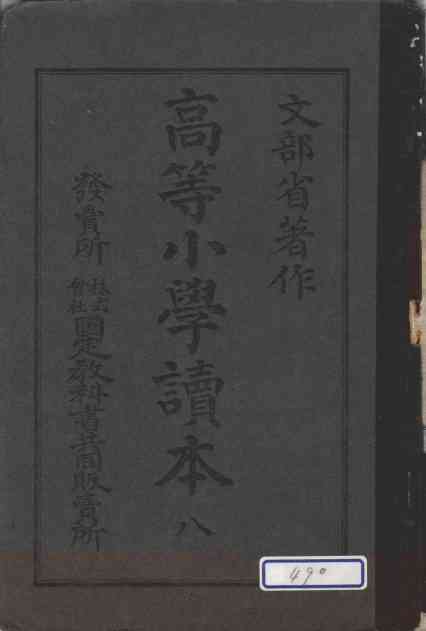 文部省著作
高等小學讀本 八
發賣所 株式會社 國定教科書共同販賣所
490